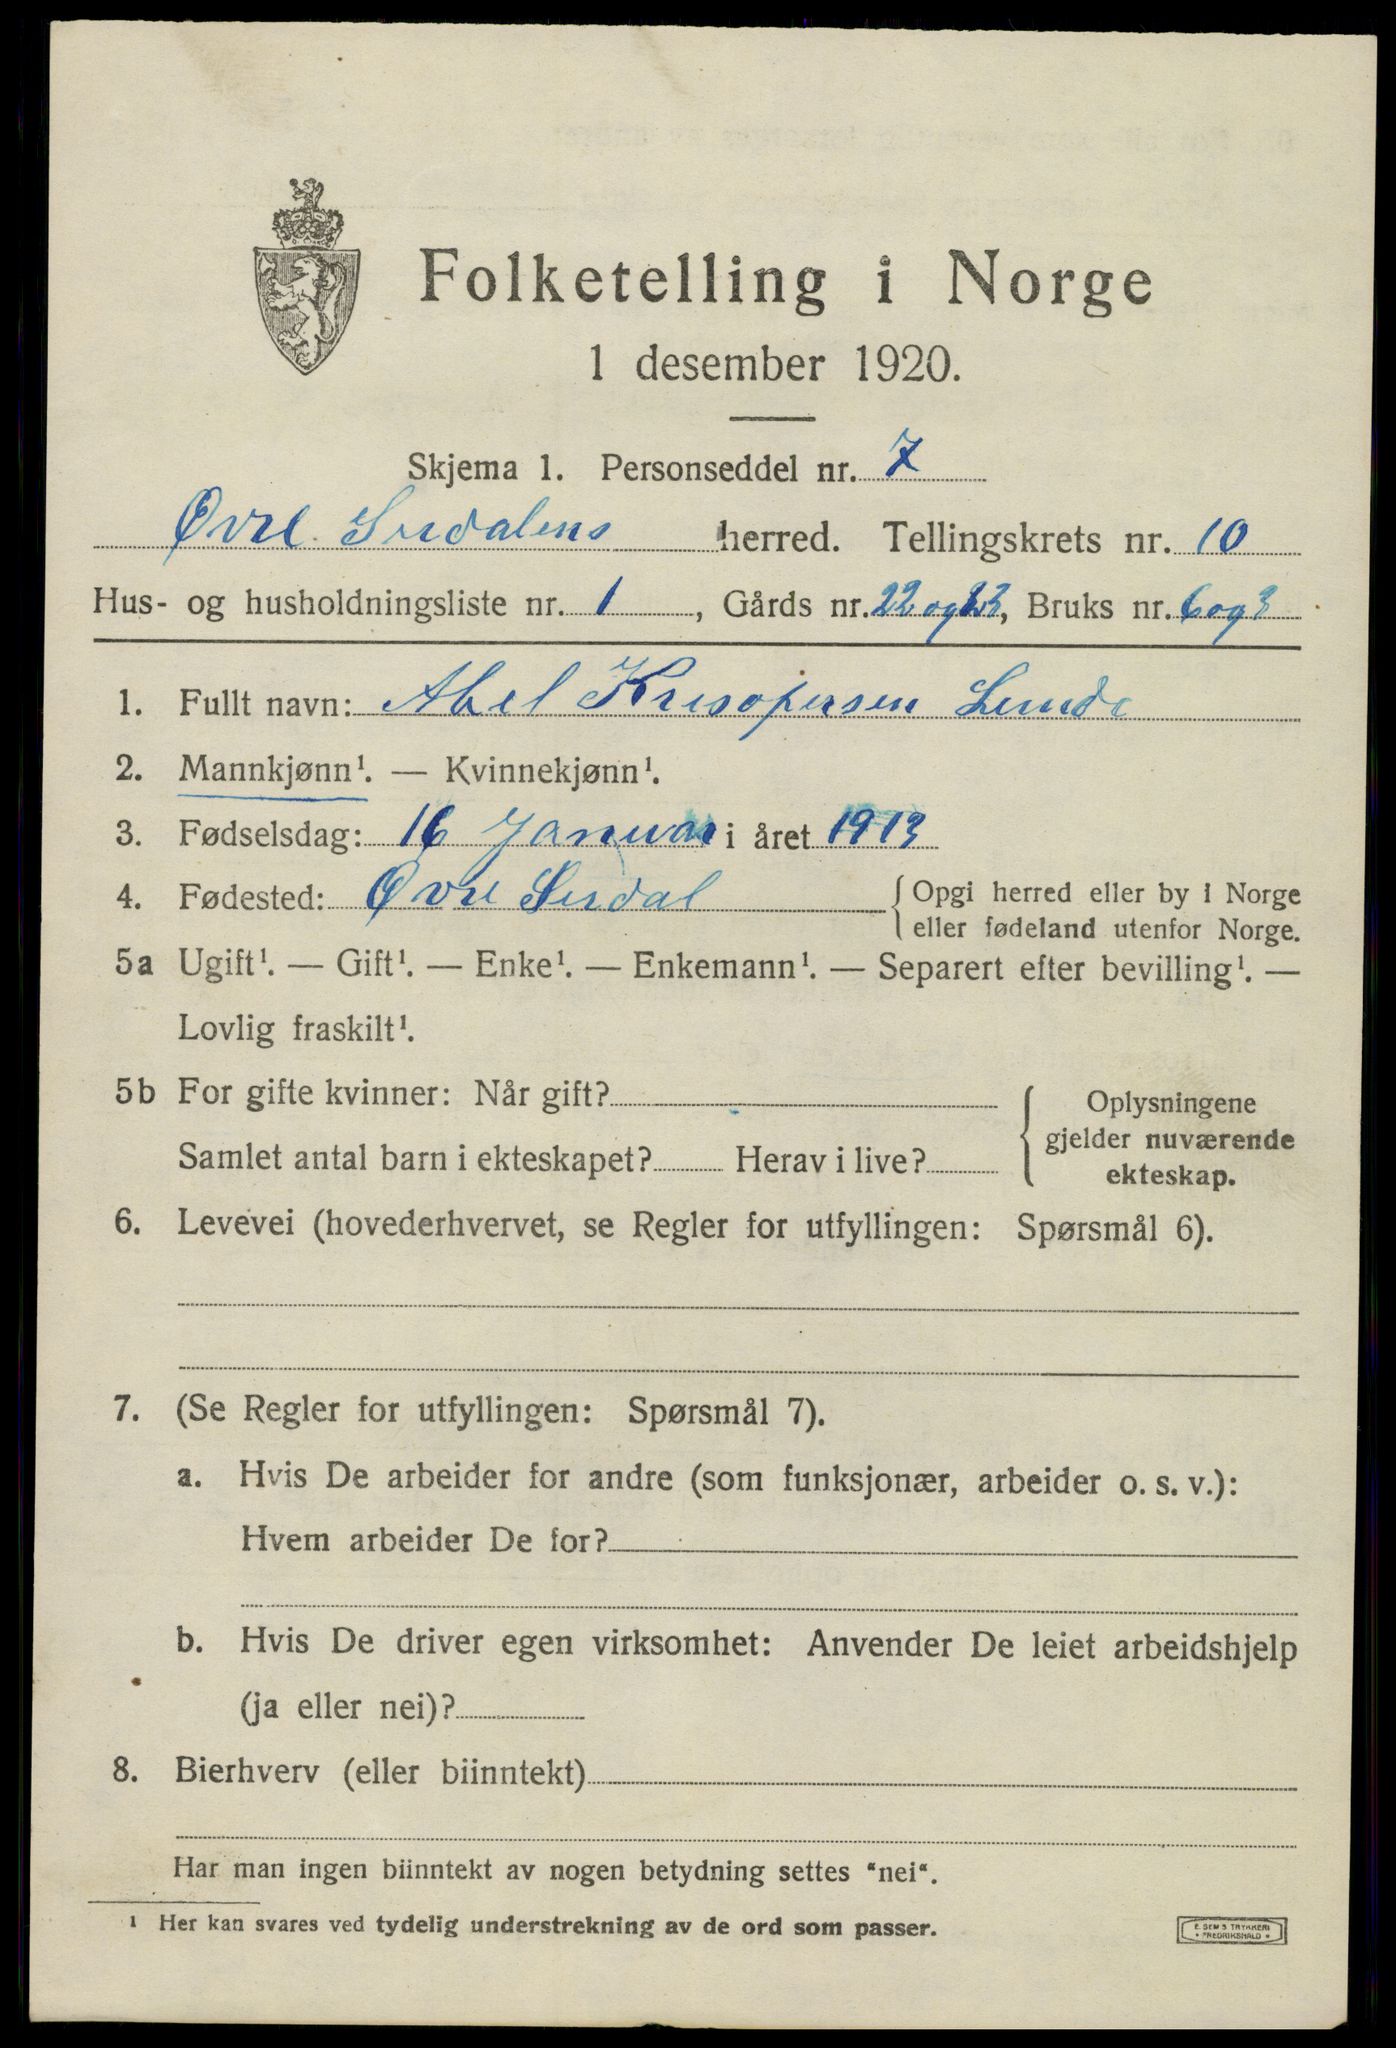 Folketelling i Norge
1 desember 1920.
Skjema 1. Personseddel nr. 7
Øvre Sirdalens herred. Tellingskrets nr. 10
Hus- og husholdningsliste nr. 1, Gårds nr. 22 og 23, Bruks nr. 6 og 3
1. Fullt navn: Abel Kresopersen Lunde
2. Mannkjønn¹. — Kvinnekjønn¹.
3. Fødselsdag: 16 Januar i året 1913
4. Fødested: Øvre Sirdal { Opgi herred eller by i Norge
eller fødeland utenfor Norge.
5a Ugift¹. — Gift¹. — Enke¹. — Enkemann¹. — Separert efter bevilling¹. —
Lovlig fraskilt¹.
5b For gifte kvinner: Når gift?
Samlet antal barn i ekteskapet? Herav i live?
{ Oplysningene
gjelder nuværende
ekteskap.
6. Levevei (hovederhvervet, se Regler for utfyllingen: Spørsmål 6).
7. (Se Regler for utfyllingen: Spørsmål 7).
a. Hvis De arbeider for andre (som funksjonær, arbeider o. s. v.):
Hvem arbeider De for?
b. Hvis De driver egen virksomhet: Anvender De leiet arbeidshjelp
(ja eller nei)?
8. Bierhverv (eller biinntekt)
Har man ingen biinntekt av nogen betydning settes "nei".
1 Her kan svares ved tydelig understrekning av de ord som passer.
E. SEM'S TRYKKERI
• FREDRIKSHALD •